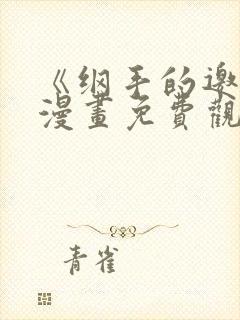 《纲手的邀
漫畫免費觀
青雀